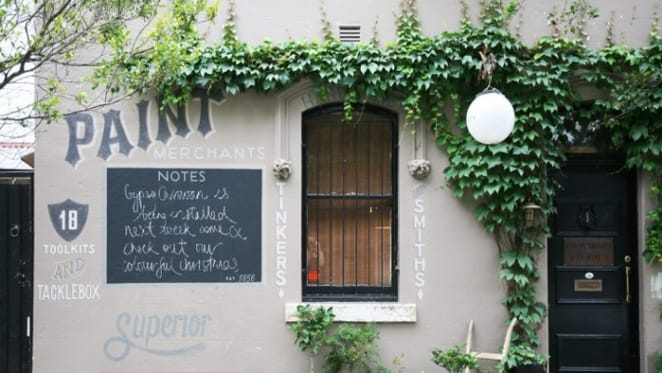 PAINT
MERCHANTS
NOTES
Gypsy Caravan is
being installed
next week come &
check out our
colourful christmas
EST 1858
18
TOOLKITS
AND
TACKLEBOX
Superior
TINKERS
SMITHS